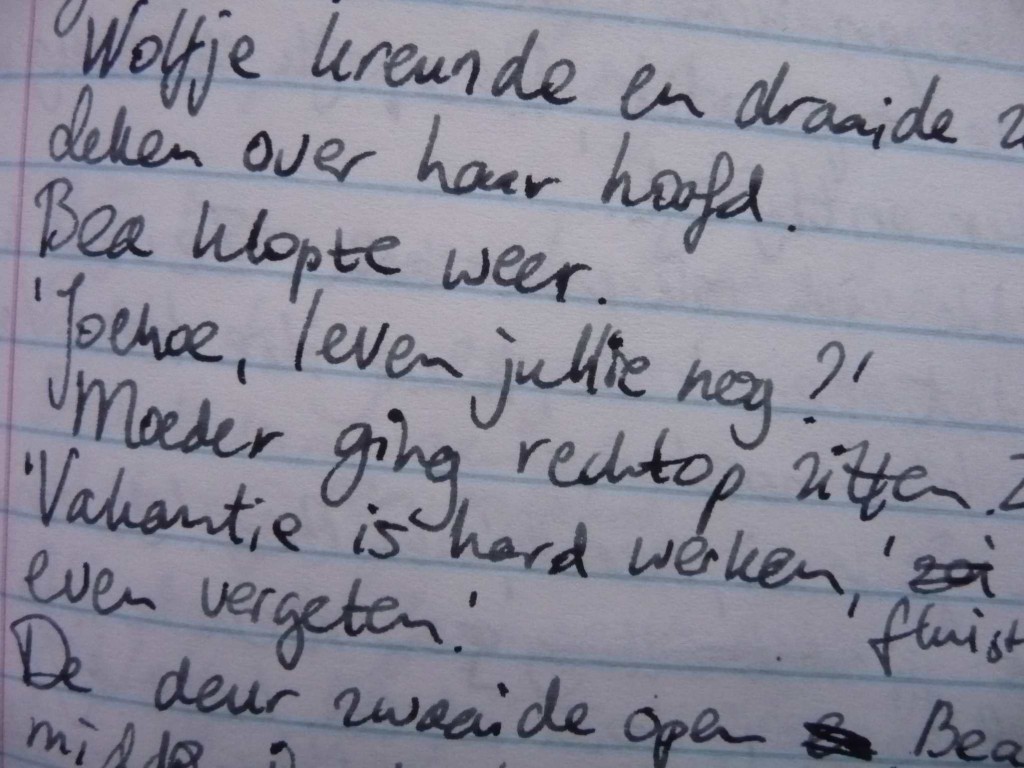 Wolfje kreunde en draaide z
deken over haar hoofd.
Bea klopte weer.
'Joehoe, leven jullie nog?'
Moeder ging rechtop zitten. Z
'Vakantie is hard werken,' zei
even vergeten.' fluist
De deur zwaaide open Bea
midde